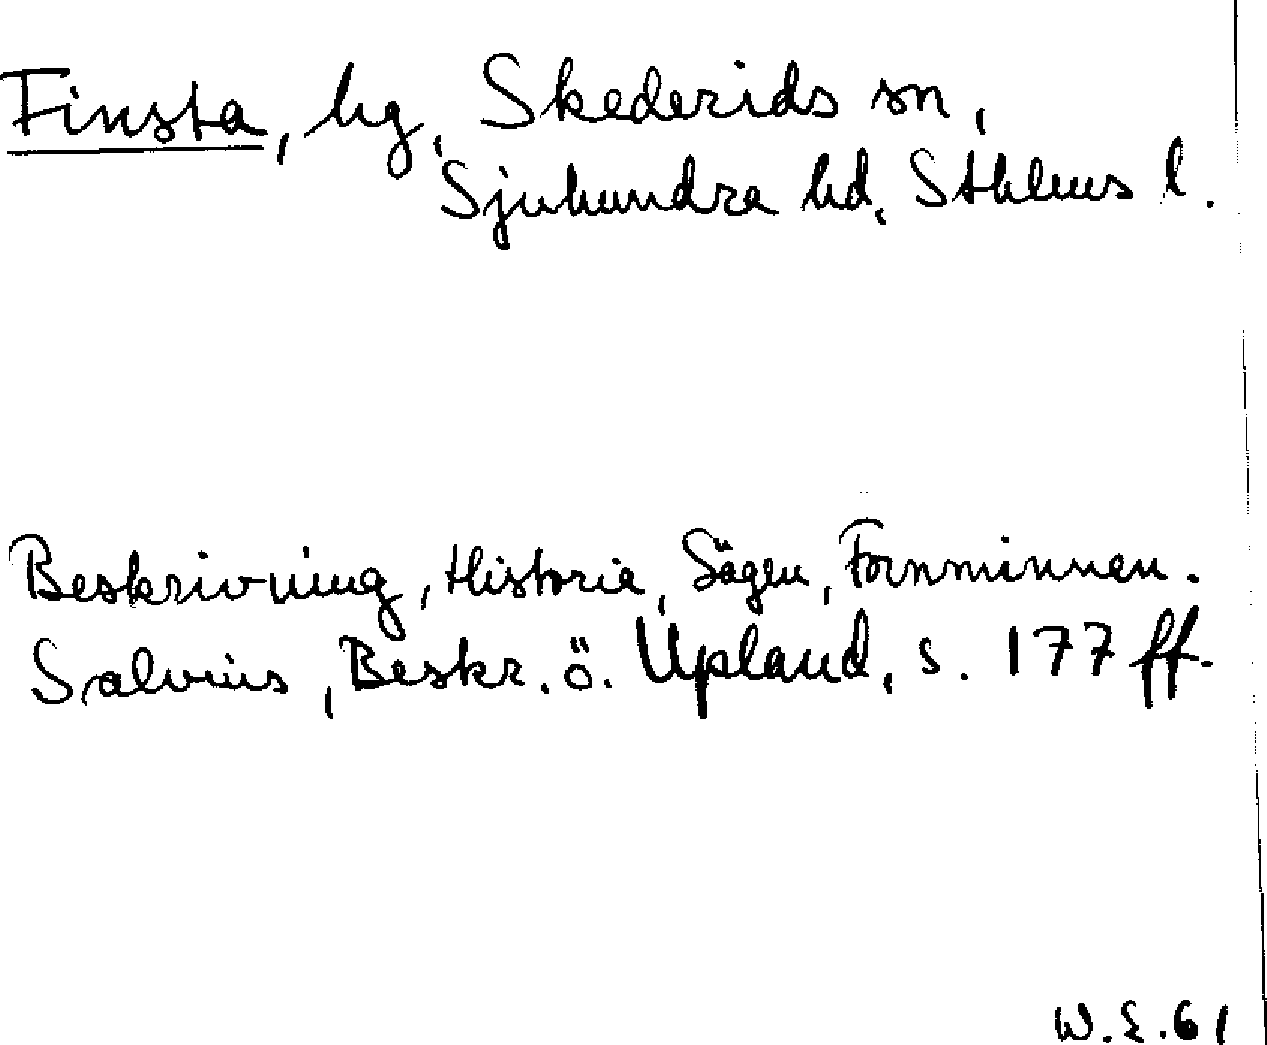 Finsta, hg, Skederids sn,
Sjuhundra hd, Sthlms l.
Beskrivning, Historia, Sägen, Fornminnen.
Salvius, Beskr. ö. Upland, s. 177 ff.
W.E.61